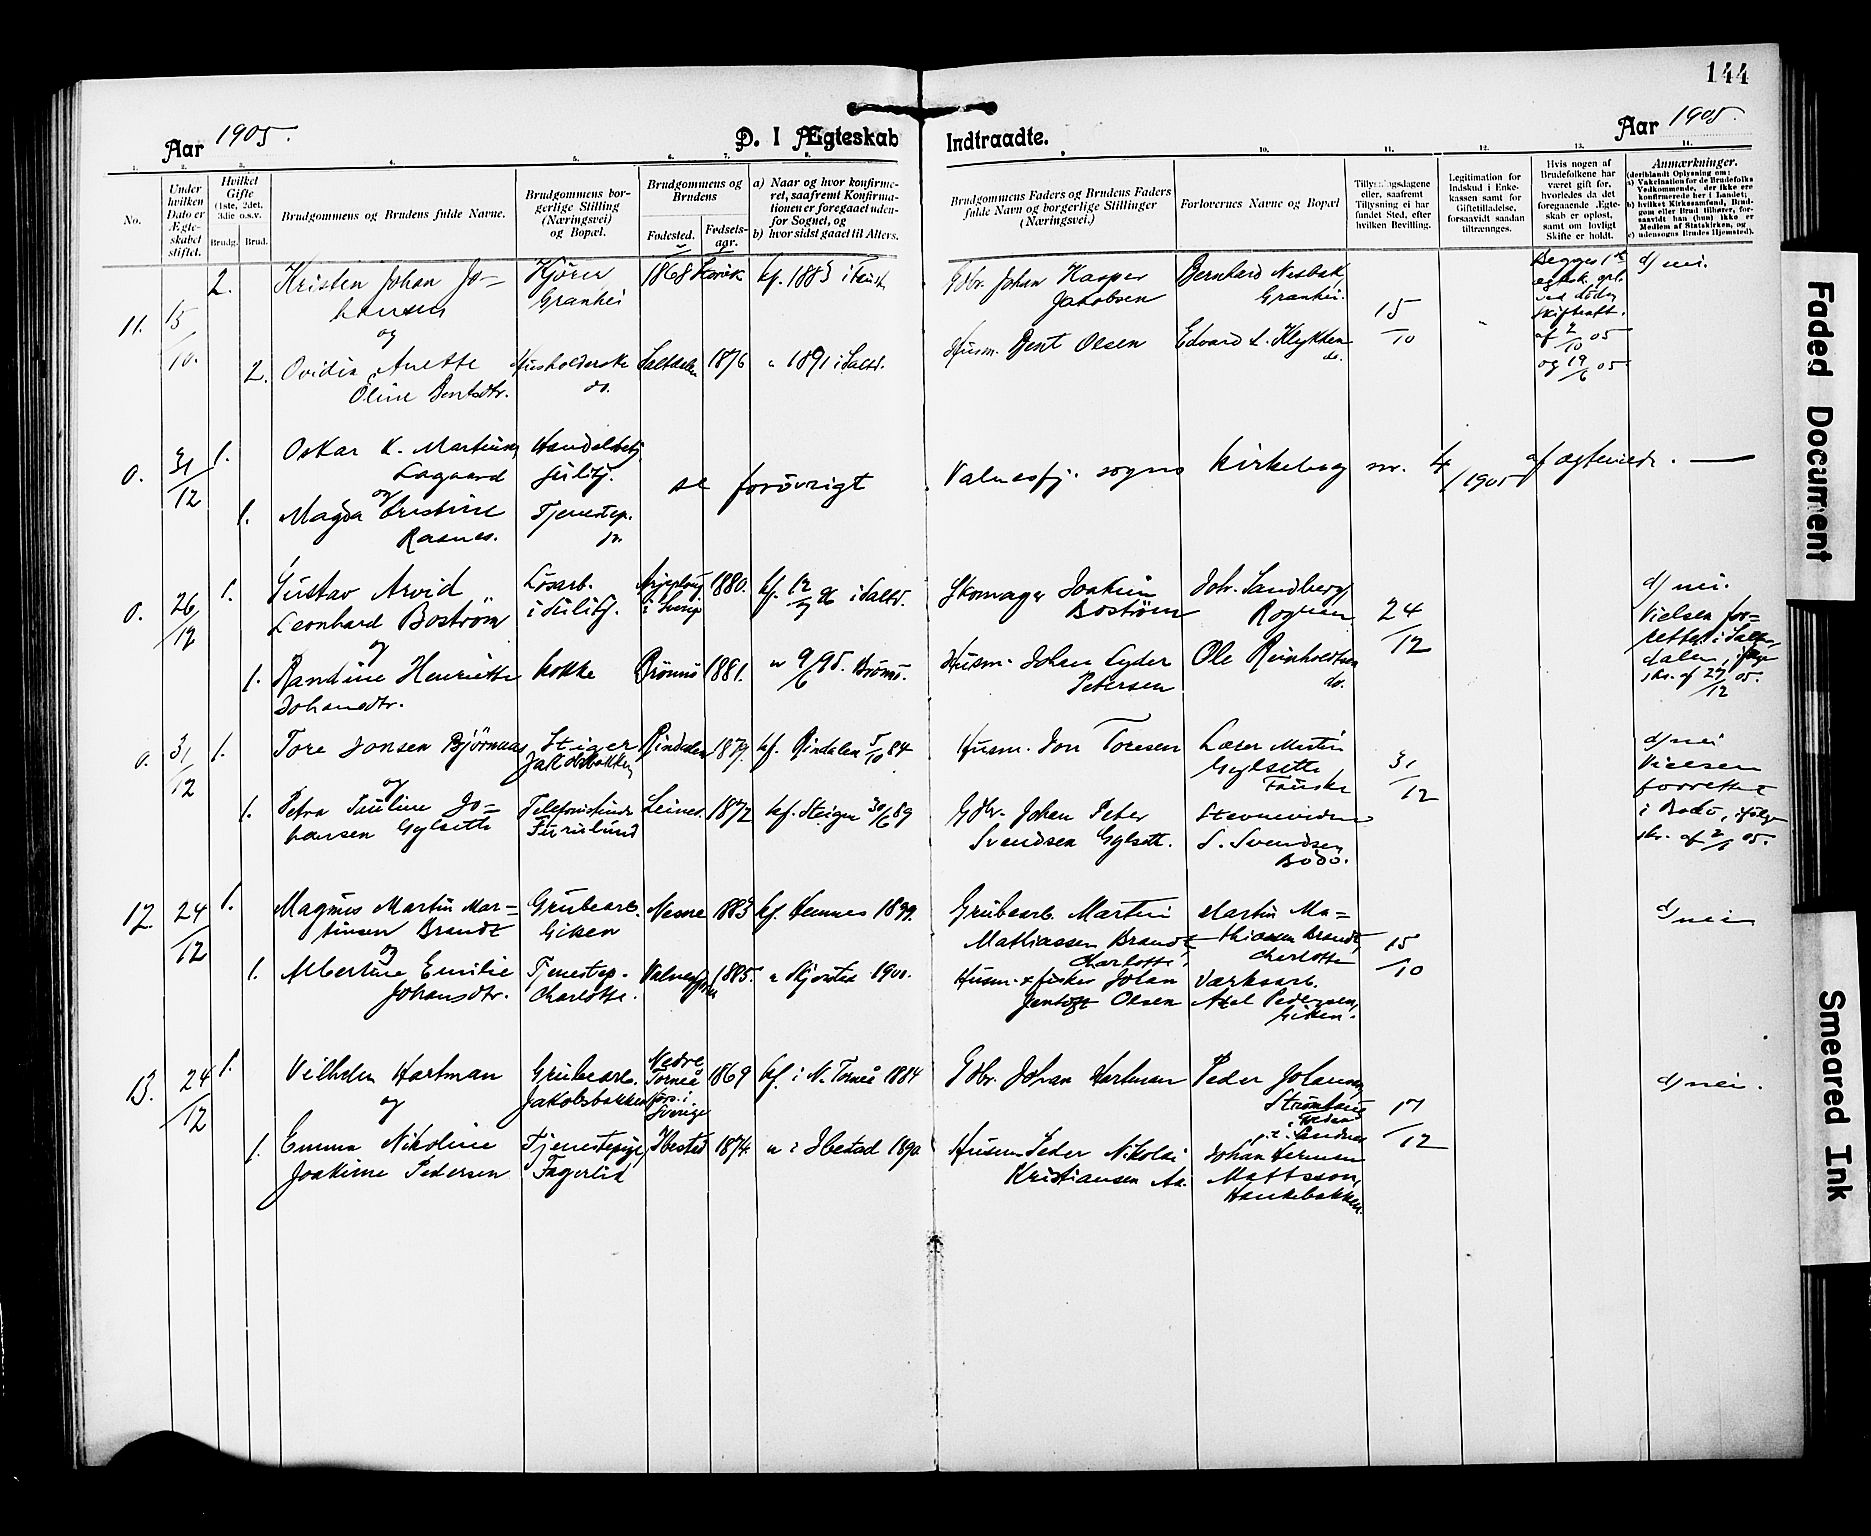 144
Aar 1905.
D. I Ægteskab Indtraadte.
Aar 1905.
1. 2. 3. 4. 5. 6. 7. 8. 9 10. 11. 12. 13. 14.
No.
Under
hvilken
Dato er
Ægte-
skabet
stiftet.
Hvilket
Gifte
(1ste, 2det,
3die o.s.v.
Brudg. Brud.
Brudgommens og Brudens fulde Navne.
Brudgommens bor-
gerlige Stilling
(Næringsvei)
og Bopæl.
Brudgommens og
Brudens
Fødested.
Fødsels-
aar.
a) Naar og hvor konfirme-
ret, saafremt Konfirma-
tionen er foregaaet uden-
for Sognet, og
b) hvor sidst gaaet til Alters.
Brudgommens Faders og Brudens Faders
fulde Navn og borgerlige Stillinger
(Næringsvei.)
Forlovernes Navne og Bopæl
Tillysningsdagene
eller, saafremt
Tillysning ei har
fundet Sted, efter
hvilken Bevilling.
Legitimation for
Indskud i Enke-
kassen samt for
Giftetilladelse,
forsaavidt saadan
tiltrænges.
Hvis nogen af
Brudefolkene har
været gift før,
hvorledes da det
foregaaende Ægte-
skab er opløst,
samt om lovligt
Skifte er holdt.
Anmærkninger.
(deriblandt Oplysning om:
a) Vakcination for de Brudefolks
Vedkommende, der ikke ere
konfirmerede her i Landet;
b) hvilket Kirkesamfund, Brud-
gom eller Brud tilhører, for-
saavidt han (hun) ikke er
Medlem af Statskirken, og
c) udensogns Brudes Hjemsted).
11. 15/10. 2. Kristen Johan Jo-
hansen
og
Kjører
Granhei
1868 kf. 1883
Gdbr. Johan Kasper
Jakobsen
Bernhard Nesbak,
Granhei.
15/10
Begges 1ste
ved døden
skifteatt.
af 2/10 05
og 19/6 05.
d) nei.
2. Ovidia Anette
Oline Bentsdtr.
Husholderske
do.
Saltdalen 1876 " 1891 i Saltd.
Husm. Bent Olsen
Edvard L. Klykken
do.
0. 31/12 1. Oskar K. Martinus
Lagaard
og
Sulitj.
1. Magda Kristine
Rasnes.
Tjenestep.
se forøvrigt Valnesfj. sogns kirkebog nr. 4/1905 af ægteviede. —
0. 26/12 1. Gustav Arvid
Leonhard Boström
og
Løsarb.
i Sulitj.
1880. kf. i Saltd.
Skomager Joakim
Boström
Joh. Sandberg
Rognan
24/12
d) nei.
Vielsen for-
rettet i Salt-
dalen, ifølge
skr. af 27/12 05.
1. Randine Henriette
Johansdtr.
kokke
Brönnö 1881. " 9/6 95. Brönnö.
Husm. Johan Eyder
Petersen
Ole Reinholdtsen
do.
0. 31/12 1. Tore Jonsen Bjørnaas
og
Stiger
Jakobsbakken
Rindalen 1879. kf. Rindalen 5/10 84
Husm. Jon Toresen
Gylseth
Fauske
31/12
d) nei
Vielsen
forrettet
i Bodö, ifølge
skr. af
1. Petra Pauline Jo-
hansen Gylseth
Furulund
Leines. 1872 kf. Steigen 30/6 89
Gdbr. Johan Peter
Svendsen Gylseth.
S. Svendsen
Bodö.
12. 24/12 1. Magnus Martin Mar-
tinsen Brandt
og
Grubearb.
Giken
Nesne 1883 kf. Hemnes 1899.
Grubearb. Martin
Mathiassen Brandt
Charlotte.
Martin Ma-
thiassen Brandt,
Charlotte
15/10
d) nei
1. Albertine Emilie
Johansdtr.
Tjenestep.
Charlotte.
Valnesfjord 1885. " Skjerstad 1900.
Husm. & fisker Johan
Jentoft Olsen
Værksarb.
Axel Pedersen,
Giken.
13. 24/12 1. Vilhelm Hartman
og
Grubearb.
Jakobsbakken
Nedre
Torneå
i
Sverige
1869 kf. i N. Torneå 1884
Gdbr. Johan Hartman
Peder Johannes
17/12
d) nei.
1. Emma Nikoline
Joakime Pedersen
Tjenestepige,
Fagerlid
Ibestad 1874. " i Ibestad 1890
Husm. Peder Nikolai
Kristiansen Aa.
Johan Herman
Mattsson,
Hankabakken.
Faded Document
Smeared Ink